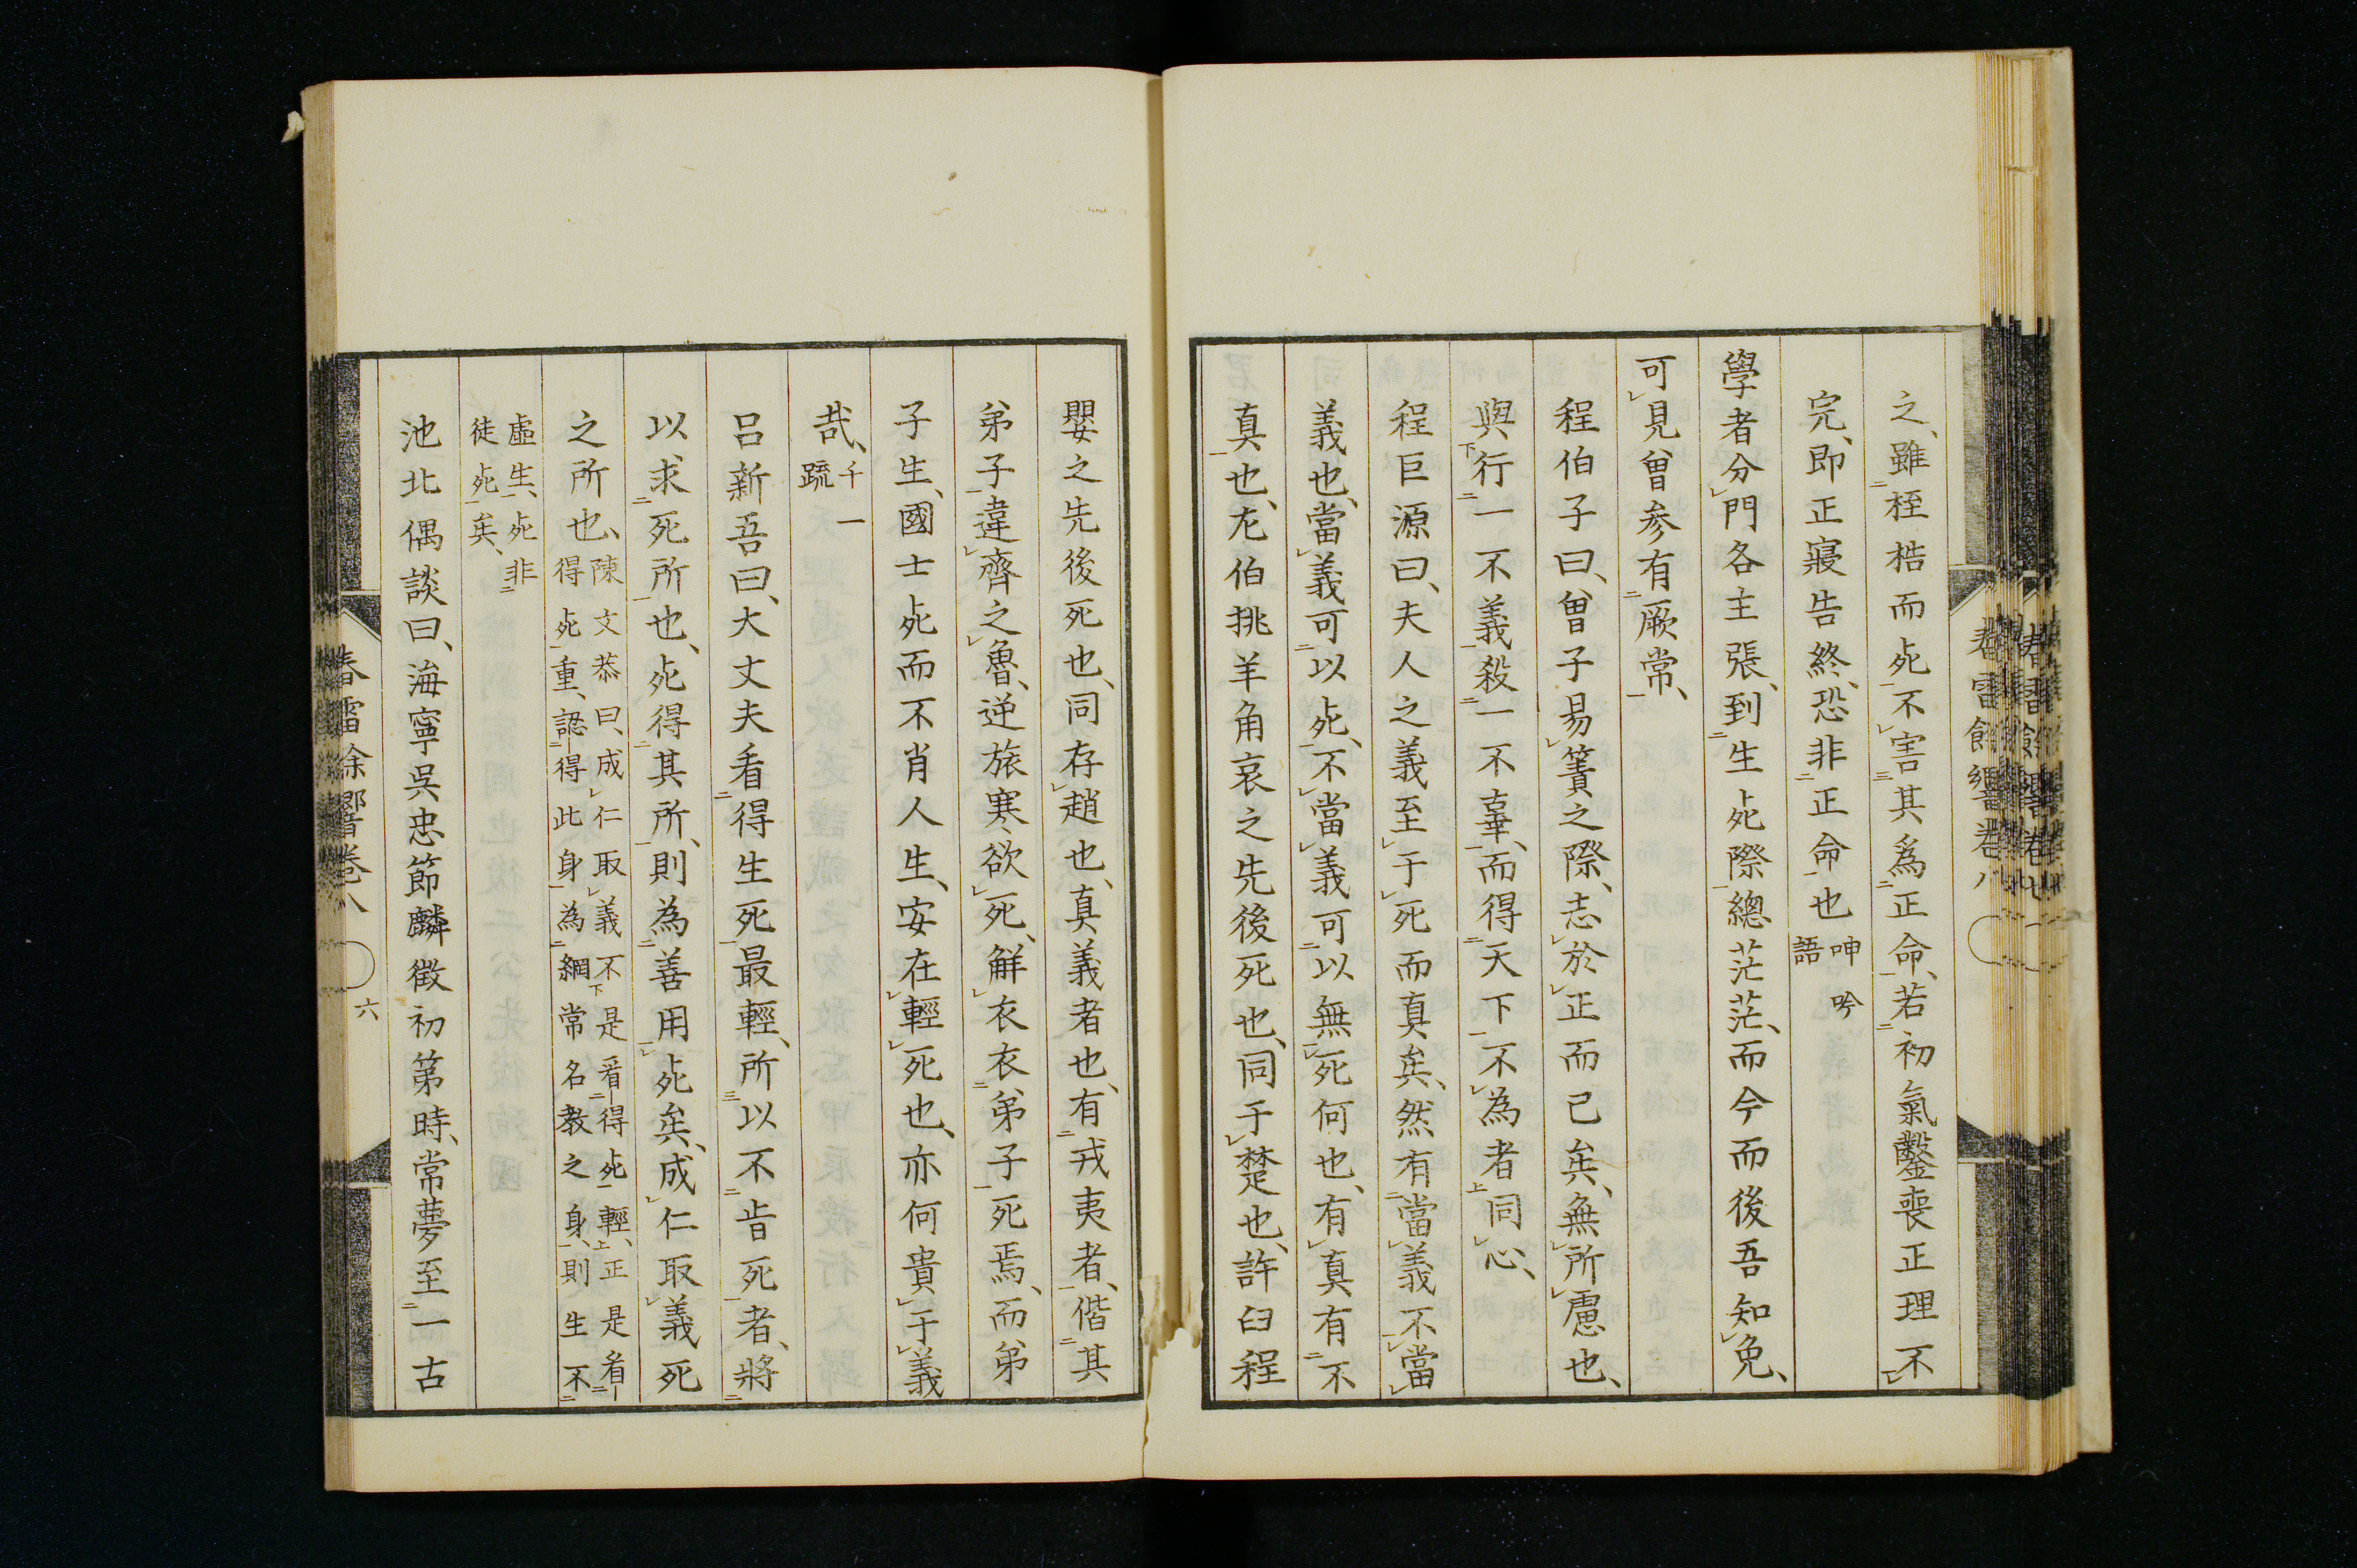 之、雖桎梏而死不害其爲正命、若初氣鑿喪正理不
完、即正寢告終、恐非正命也呻吟語
學者分門各主張、到生死際總茫茫、而今而後吾知免、
可見曾参有厥常、
程伯子曰、曾子易簀之際、志於正而已矣、無所慮也、
與行一不義殺一不辜、而得天下不為者同心、
程巨源曰、夫人之義至于死而真矣、然有當義不當
義也、當義可以死、不當義可以無死何也、有真有不
真也、左伯挑羊角哀之先後死也、同于楚也、許臼程
嬰之先後死也、同存趙也、真義者也、有戎夷者、偕其
弟子違齊之魯、逆旅寒、欲死、解衣衣弟子死焉、而弟
子生、國士死而不肖人生、安在輕死也、亦何貴于義
哉、千一疏
呂新吾曰、大丈夫看得生死最輕、所以不肯死者、將
以求死所也、死得其所、則為善用死矣、成仁取義死
之所也、陳文恭曰、成仁取義不是看得死輕、正是看
得死重、認得此身為綱常名教之身、則生不
虛生、死非
徒死矣、
池北偶談曰、海寧吳忠節麟徵初第時、常夢至一古
春雷餘響卷八
六
春雷餘響卷八